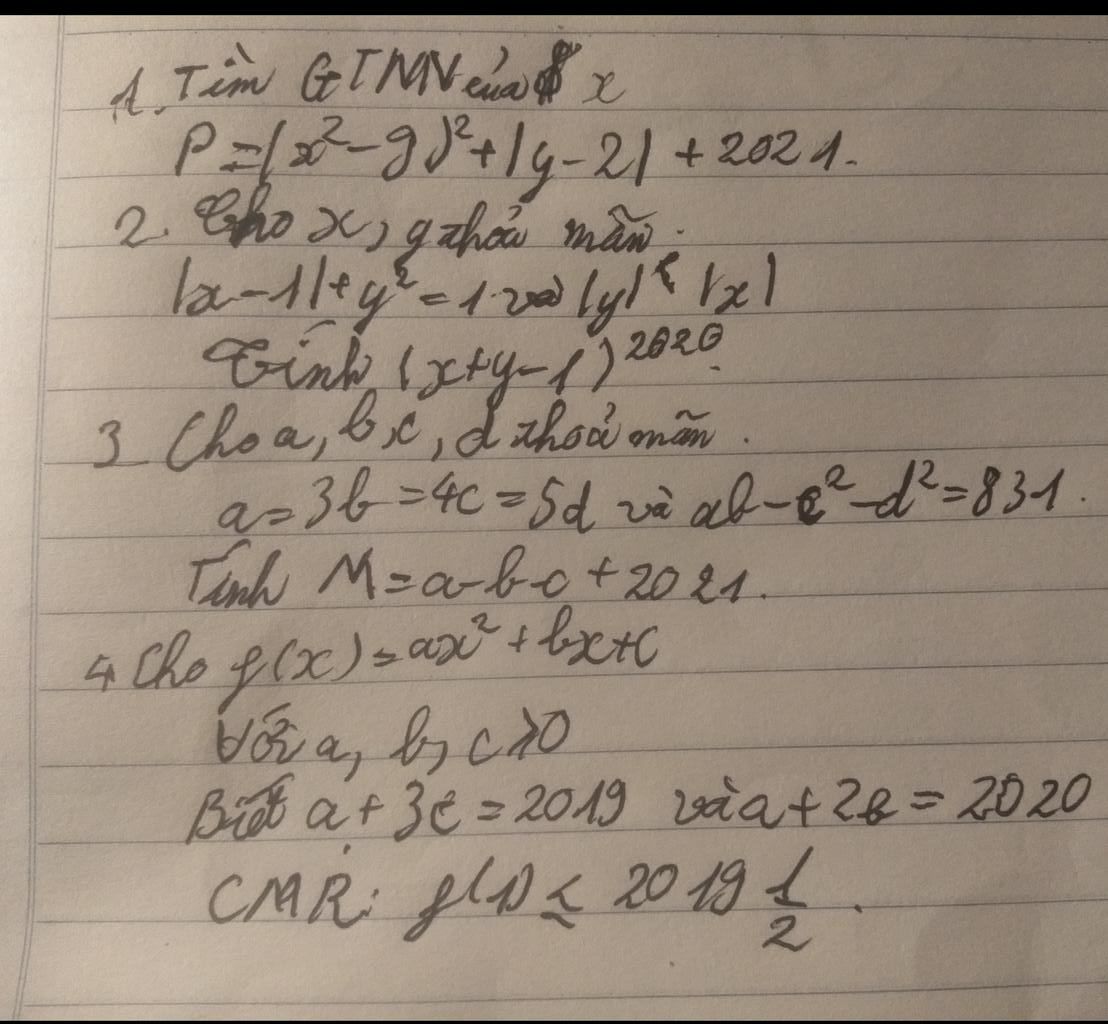 1. Tìm GTNN của x
P = (x² - 9)² + |y - 2| + 2021.
2. Cho x, y thỏa mãn.
|x - 1| + y² = 1 và |y| < |x|
Tính (x + y - 1)²⁰²⁰.
3 Cho a, b, c, d thoả mãn.
a = 3b = 4c = 5d và ab - c² - d² = 831.
Tính M = a - b - c + 2021.
4 Cho f(x) = ax² + bx + c
Với a, b, c ≥ 0
Biết a + 3c = 2019 và a + 2b = 2020
CMR: f(1) ≤ 2019 1/2.